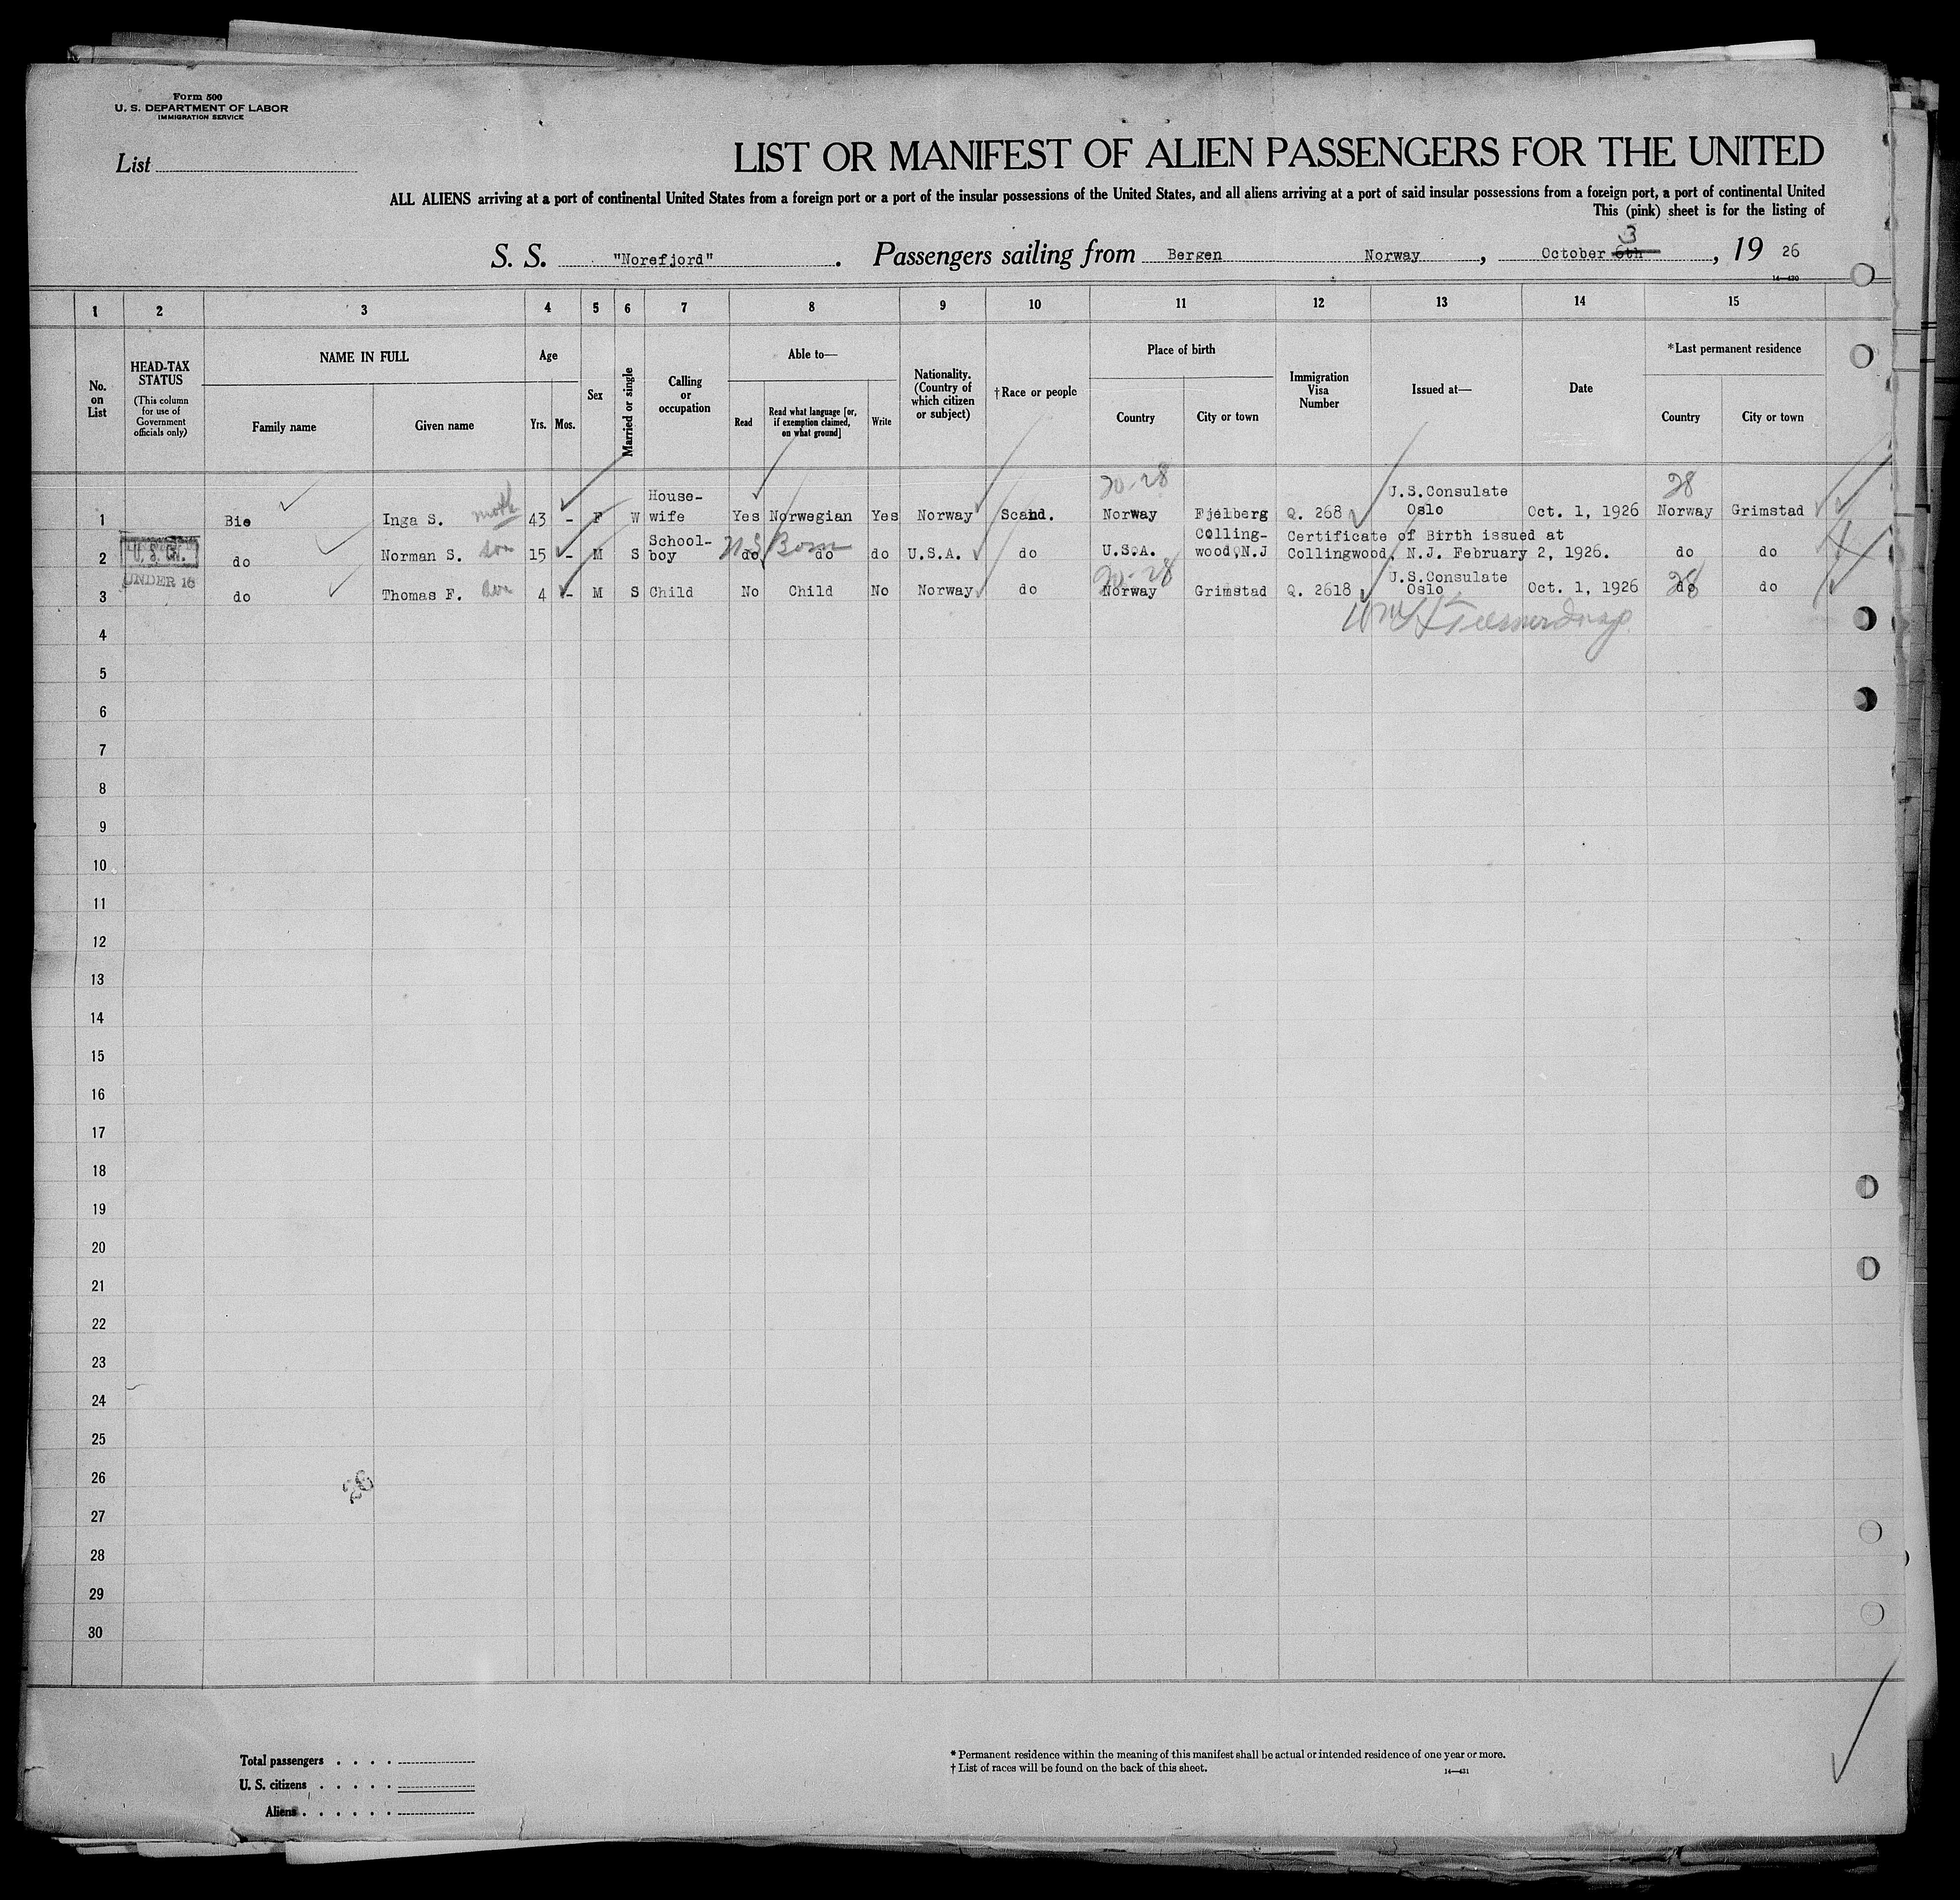 Form 500
U. S. DEPARTMENT OF LABOR
IMMIGRATION SERVICE
List
LIST OR MANIFEST OF ALIEN PASSENGERS FOR THE UNITED
ALL ALIENS arriving at a port of continental United States from a foreign port or a port of the insular possessions of the United States, and all aliens arriving at a port of said insular possessions from a foreign port, a port of continental United
This (pink) sheet is for the listing of
S. S. "Norefjord". Passengers sailing from Bergen Norway, October 6th 3, 19 26
14—430
1 2 3 4 5 6 7 8 9 10 11 12 13 14 15
No. on List
HEAD-TAX STATUS
(This column for use of Government officials only)
NAME IN FULL
Family name Given name
Age
Yrs. Mos.
Sex
Married or single
Calling or occupation
Able to—
Read
Read what language [or, if exemption claimed, on what ground]
Write
Nationality. (Country of which citizen or subject)
†Race or people
Place of birth
Country City or town
Immigration Visa Number
Issued at—
Date
*Last permanent residence
Country City or town
20-28 28
1 Bie Inga S. moth 43 - F W House-wife Yes Norwegian Yes Norway Scand. Norway Fjelberg Q. 268 U.S.Consulate Oslo Oct. 1, 1926 Norway Grimstad
U. S. Cit.
2 do Norman S. son 15 - M S School-boy do do do U.S.A. do U.S.A. Colling-wood,N.J Certificate of Birth issued at Collingwood, N.J. February 2, 1926. do do
US Born
UNDER 16
20-28 28
3 do Thomas F. son 4 - M S Child No Child No Norway do Norway Grimstad Q. 2618 U.S.Consulate Oslo Oct. 1, 1926 do do
4
5
6
7
8
9
10
11
12
13
14
15
16
17
18
19
20
21
22
23
24
25
26
28
27
28
29
30
Total passengers . . . .
U. S. citizens . . . . .
Aliens . . . . . .
* Permanent residence within the meaning of this manifest shall be actual or intended residence of one year or more.
† List of races will be found on the back of this sheet.
14—431